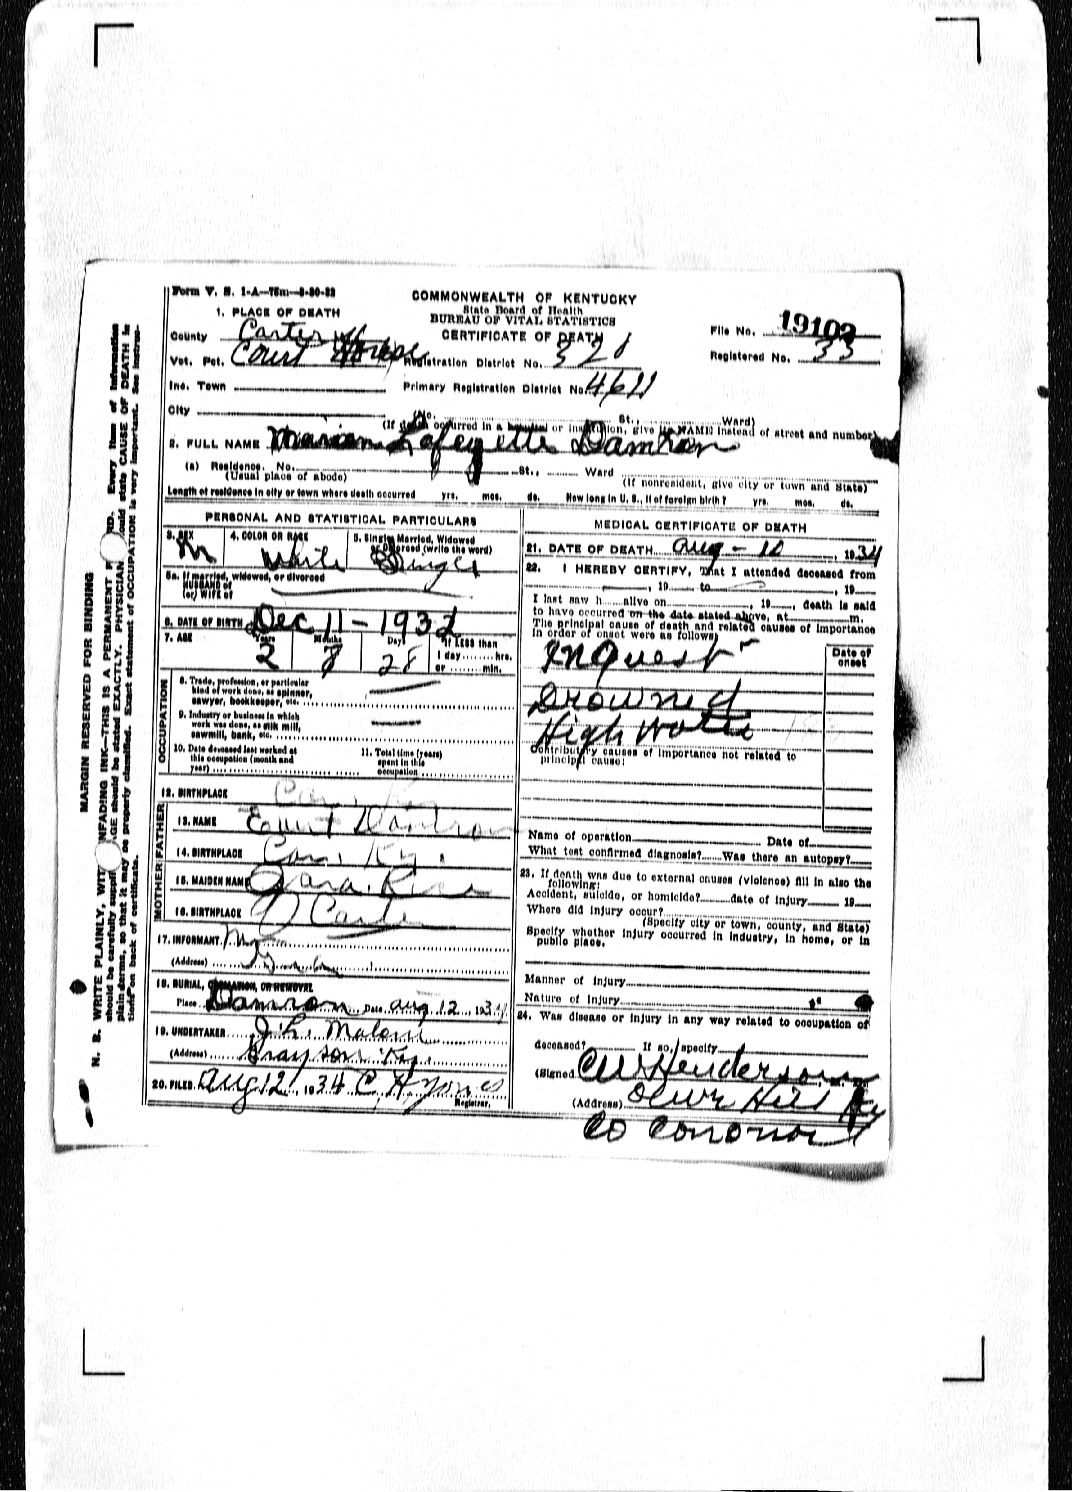 Form V. S. 1-A—75m—8-30-33
COMMONWEALTH OF KENTUCKY
State Board of Health
BUREAU OF VITAL STATISTICS
CERTIFICATE OF DEATH
1. PLACE OF DEATH
County Carter
Vot. Pct. Court House
Inc. Town
City
Registration District No. 326
Primary Registration District No. 4611
File No. 19102
Registered No. 33
(No. St., Ward)
(If death occurred in a hospital or institution, give its NAME instead of street and number)
2. FULL NAME Marion Lafeyette Damron
(a) Residence. No. St., Ward
(Usual place of abode) (If nonresident, give city or town and State)
Length of residence in city or town where death occurred yrs. mos. ds. How long in U. S., if of foreign birth? yrs. mos. ds.
PERSONAL AND STATISTICAL PARTICULARS
3. SEX M
4. COLOR OR RACE White
5. Single, Married, Widowed
or Divorced (write the word)
Single
5a. If married, widowed, or divorced
HUSBAND of
(or) WIFE of
6. DATE OF BIRTH Dec 11 - 1932
7. AGE Years Months Days If LESS than
1 day hrs.
or min.
2 8 28
OCCUPATION
8. Trade, profession, or particular
kind of work done, as spinner,
sawyer, bookkeeper, etc.
9. Industry or business in which
work was done, as silk mill,
sawmill, bank, etc.
10. Date deceased last worked at
this occupation (month and
year)
11. Total time (years)
spent in this
occupation
12. BIRTHPLACE
FATHER
13. NAME Damron
14. BIRTHPLACE Ky.
MOTHER
15. MAIDEN NAME
16. BIRTHPLACE Carter
17. INFORMANT
(Address)
18. BURIAL, CREMATION, OR REMOVAL
Place Damron Date Aug 12 1934
19. UNDERTAKER J. L. Malone
(Address) Grayson Ky.
20. FILED Aug 12, 1934 C H Jones
Registrar.
MEDICAL CERTIFICATE OF DEATH
21. DATE OF DEATH Aug - 10, 1934
22. I HEREBY CERTIFY, That I attended deceased from
, 19 to , 19
I last saw h alive on , 19 , death is said
to have occurred on the date stated above, at m.
The principal cause of death and related causes of importance
in order of onset were as follows:
Date of
onset
Inquest
Drowned
High Water
Contributory causes of importance not related to
principal cause:
Name of operation Date of
What test confirmed diagnosis? Was there an autopsy?
23. If death was due to external causes (violence) fill in also the
following:
Accident, suicide, or homicide? date of injury 19
Where did injury occur?
(Specify city or town, county, and State)
Specify whether injury occurred in industry, in home, or in
public place.
Manner of injury
Nature of injury
24. Was disease or injury in any way related to occupation of
deceased? If so, specify
(Signed) C W Henderson
(Address) Olive Hill Ky
Co Coronor
MARGIN RESERVED FOR BINDING
N. B. WRITE PLAINLY, WITH UNFADING INK—THIS IS A PERMANENT RECORD. Every item of information
should be carefully supplied. AGE should be stated EXACTLY. PHYSICIANS should state CAUSE OF DEATH in
plain terms, so that it may be properly classified. Exact statement of OCCUPATION is very important. See instruc-
tions on back of certificate.